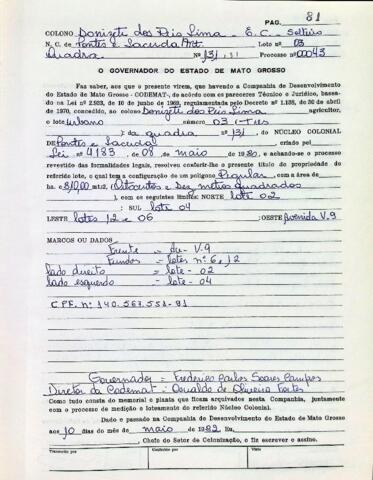 81
PAG.
COLONO Donizete dos Reis Lima - E. C. - Solteiro
N. C. de Pontes e Lacerda/Mt. Lote nº 03
Quadra Nº 131 Processo nº 00043
O GOVERNADOR DO ESTADO DE MATO GROSSO
Faz saber, aos que o presente virem, que havendo a Companhia de Desenvolvimento
do Estado de Mato Grosso - CODEMAT, de acordo com os pareceres Técnico e Jurídico, basea-
do na Lei nº 2.923, de 10 de junho de 1969, regulamentada pelo Decreto nº 1.138, de 30 de abril
de 1970, concedido, ao colono Donizete dos Reis Lima agricultor,
o lote urbano número 03 - Três
) da quadra nº 131, do NÚCLEO COLONIAL
DE Pontes e Lacerda criado pel
Lei nº 4183 de 08 de maio de 1980, e achando-se o processo
revestido das formalidades legais, resolveu conferir-lhe o presente título de propriedade do
referido lote, o qual tem a configuração de um polígono Regular, com a área de
ha. 810,00 mt2, Oitocentos e Dez metros Quadrados
), com os seguintes limites: NORTE lote 02
; SUL lote 04
LESTE lotes 12 e 06 ; OESTE Avenida V.9
MARCOS OU DADOS
Frente = Av- V.9
Fundos = lotes nº 6, 12
lado direito = lote - 02
lado esquerdo = lote - 04
C.P.F. nº 140.567.551-91
Governador = Frederico Carlos Soares Campos
Diretor da Codemat: Osvaldo de Oliveira Fortes
Como tudo consta do memorial e planta que ficam arquivados nesta Companhia, juntamente
com o processo de medição e loteamento do referido Núcleo Colonial.
Dado e passado na Companhia de Desenvolvimento do Estado de Mato Grosso
aos 10 dias do mês de maio de 1982 Eu,
, Chefe do Setor de Colonização, o fiz escrever e assino.
Transcrito por: Conferido por: Visto